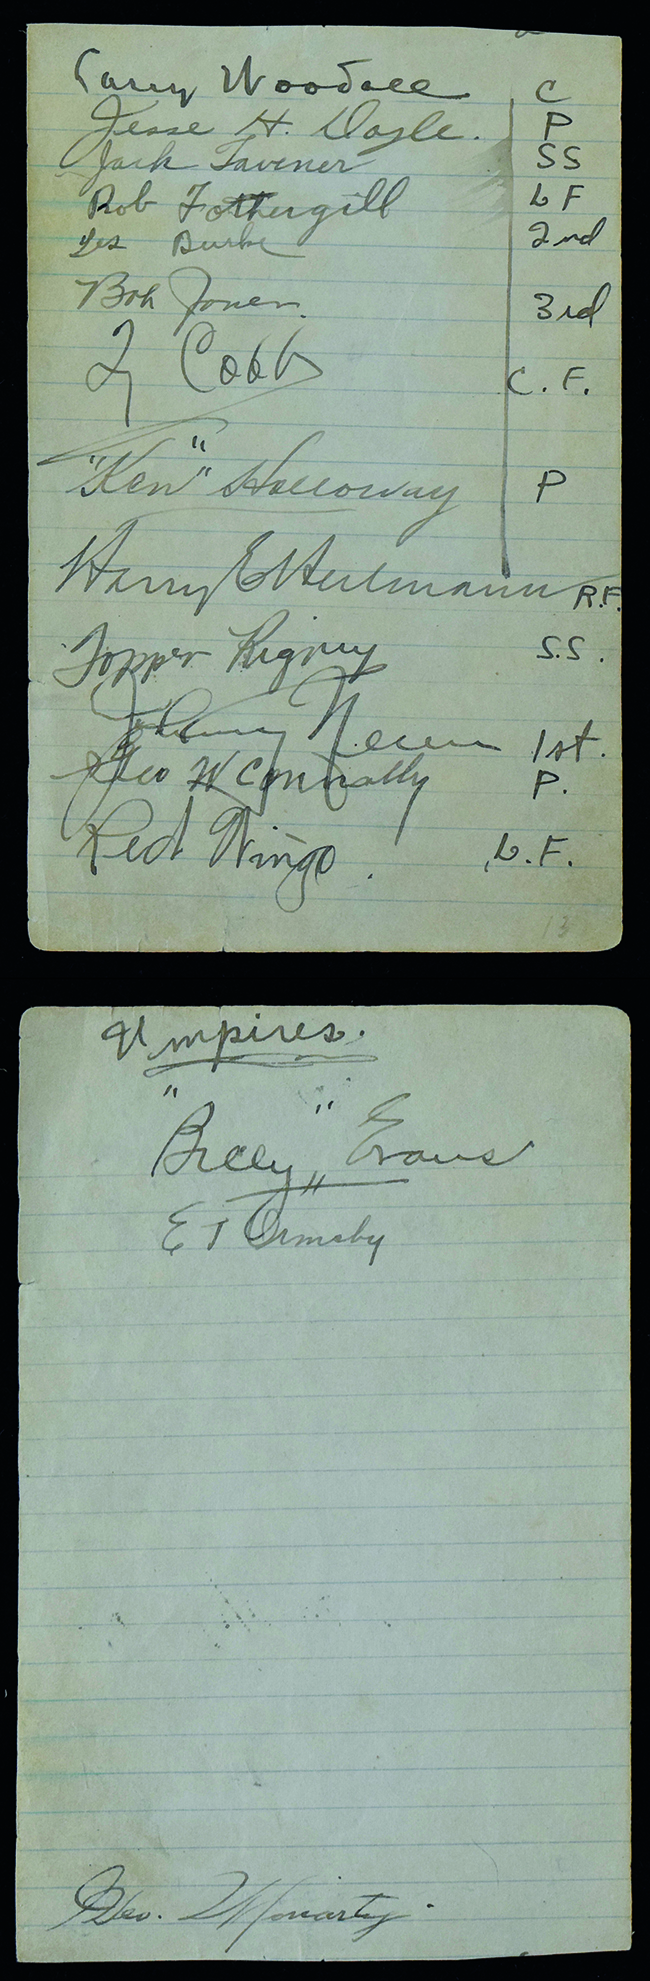 Larry Woodall C
Jesse H. Doyle. P
Jack Tavener SS
Bob Fothergill L F
Les Burke 2nd
Bob Jones. 3rd
Ty Cobb C. F.
"Ken" Holloway P
Harry E Heilmann R.F.
Topper Rigney S.S.
Johnny Neun 1st.
Geo W Connally P.
Red Wingo. L.F.
13
Umpires.
"Billy" Evans
E T Ormsby
Geo. Moriarty.